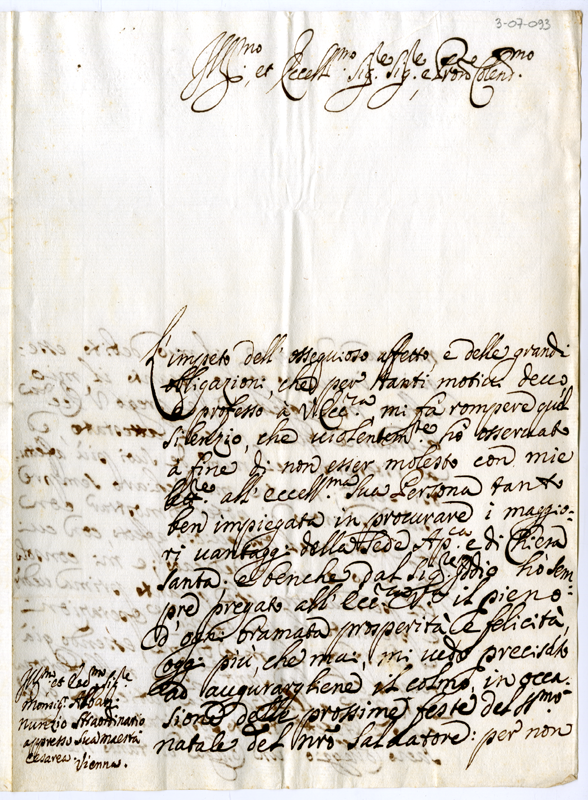 3-07-093
Ill.mo et Eccell.mo Sig.re Sig.re e Pron Colend.mo
L'impeto dell'ossequioso affetto e delle grandi
obbligazioni, che per tanti motivi devo,
e professo à V. Ecc.za mi fà rompere quel
silenzio, che violentem.te hò osservato
a fine di non esser molesto con mie
lett.re all'eccell.ma Sua Persona tanto
ben impiegata in procurare i maggio-
ri vantaggi della Sede Ap.ca e di Chiesa
Santa, e benche dal Sig.re Iddio hò sem
pre pregato all'Ecc.za V.ra il pieno
d'ogni bramata prosperità e felicità,
oggi più, che mai, mi vedo precisato
ad augurarghene il colmo, in occa-
sione delle prossime feste del SS.mo
natale del nrõ Salvatore: per non
Ill.mo et Rev.mo Sig.re
Monsig.r Albani
nunzio straordinario
appresso Sua Maestà
Cesarea. Vienna.